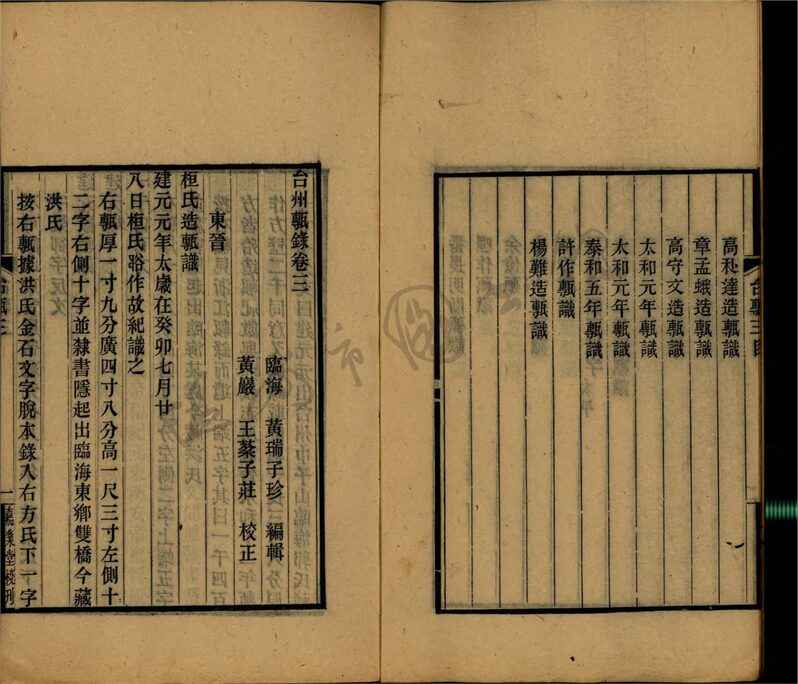 高朴達造甎識
章孟蛾造甎識
高守文造甎識
太和元年甎識
太和元年甎識
泰和五年甎識
許作甎識
楊難造甎識
台州甎錄卷三
臨海 黃瑞子珍 編輯
黃嚴 王棻子莊 校正
東晉
桓氏造甎識
建元元年太歲在癸卯七月廿
八日桓氏䛇作故紀識之
右甎厚一寸九分廣四寸八分高一尺三寸左側十
二字右側十字並隸書隱起出臨海東鄉雙橋今藏
洪氏
按右甎據洪氏金石文字脫本錄入右方氏下一字
台甎三
一
嘉業堂校刊